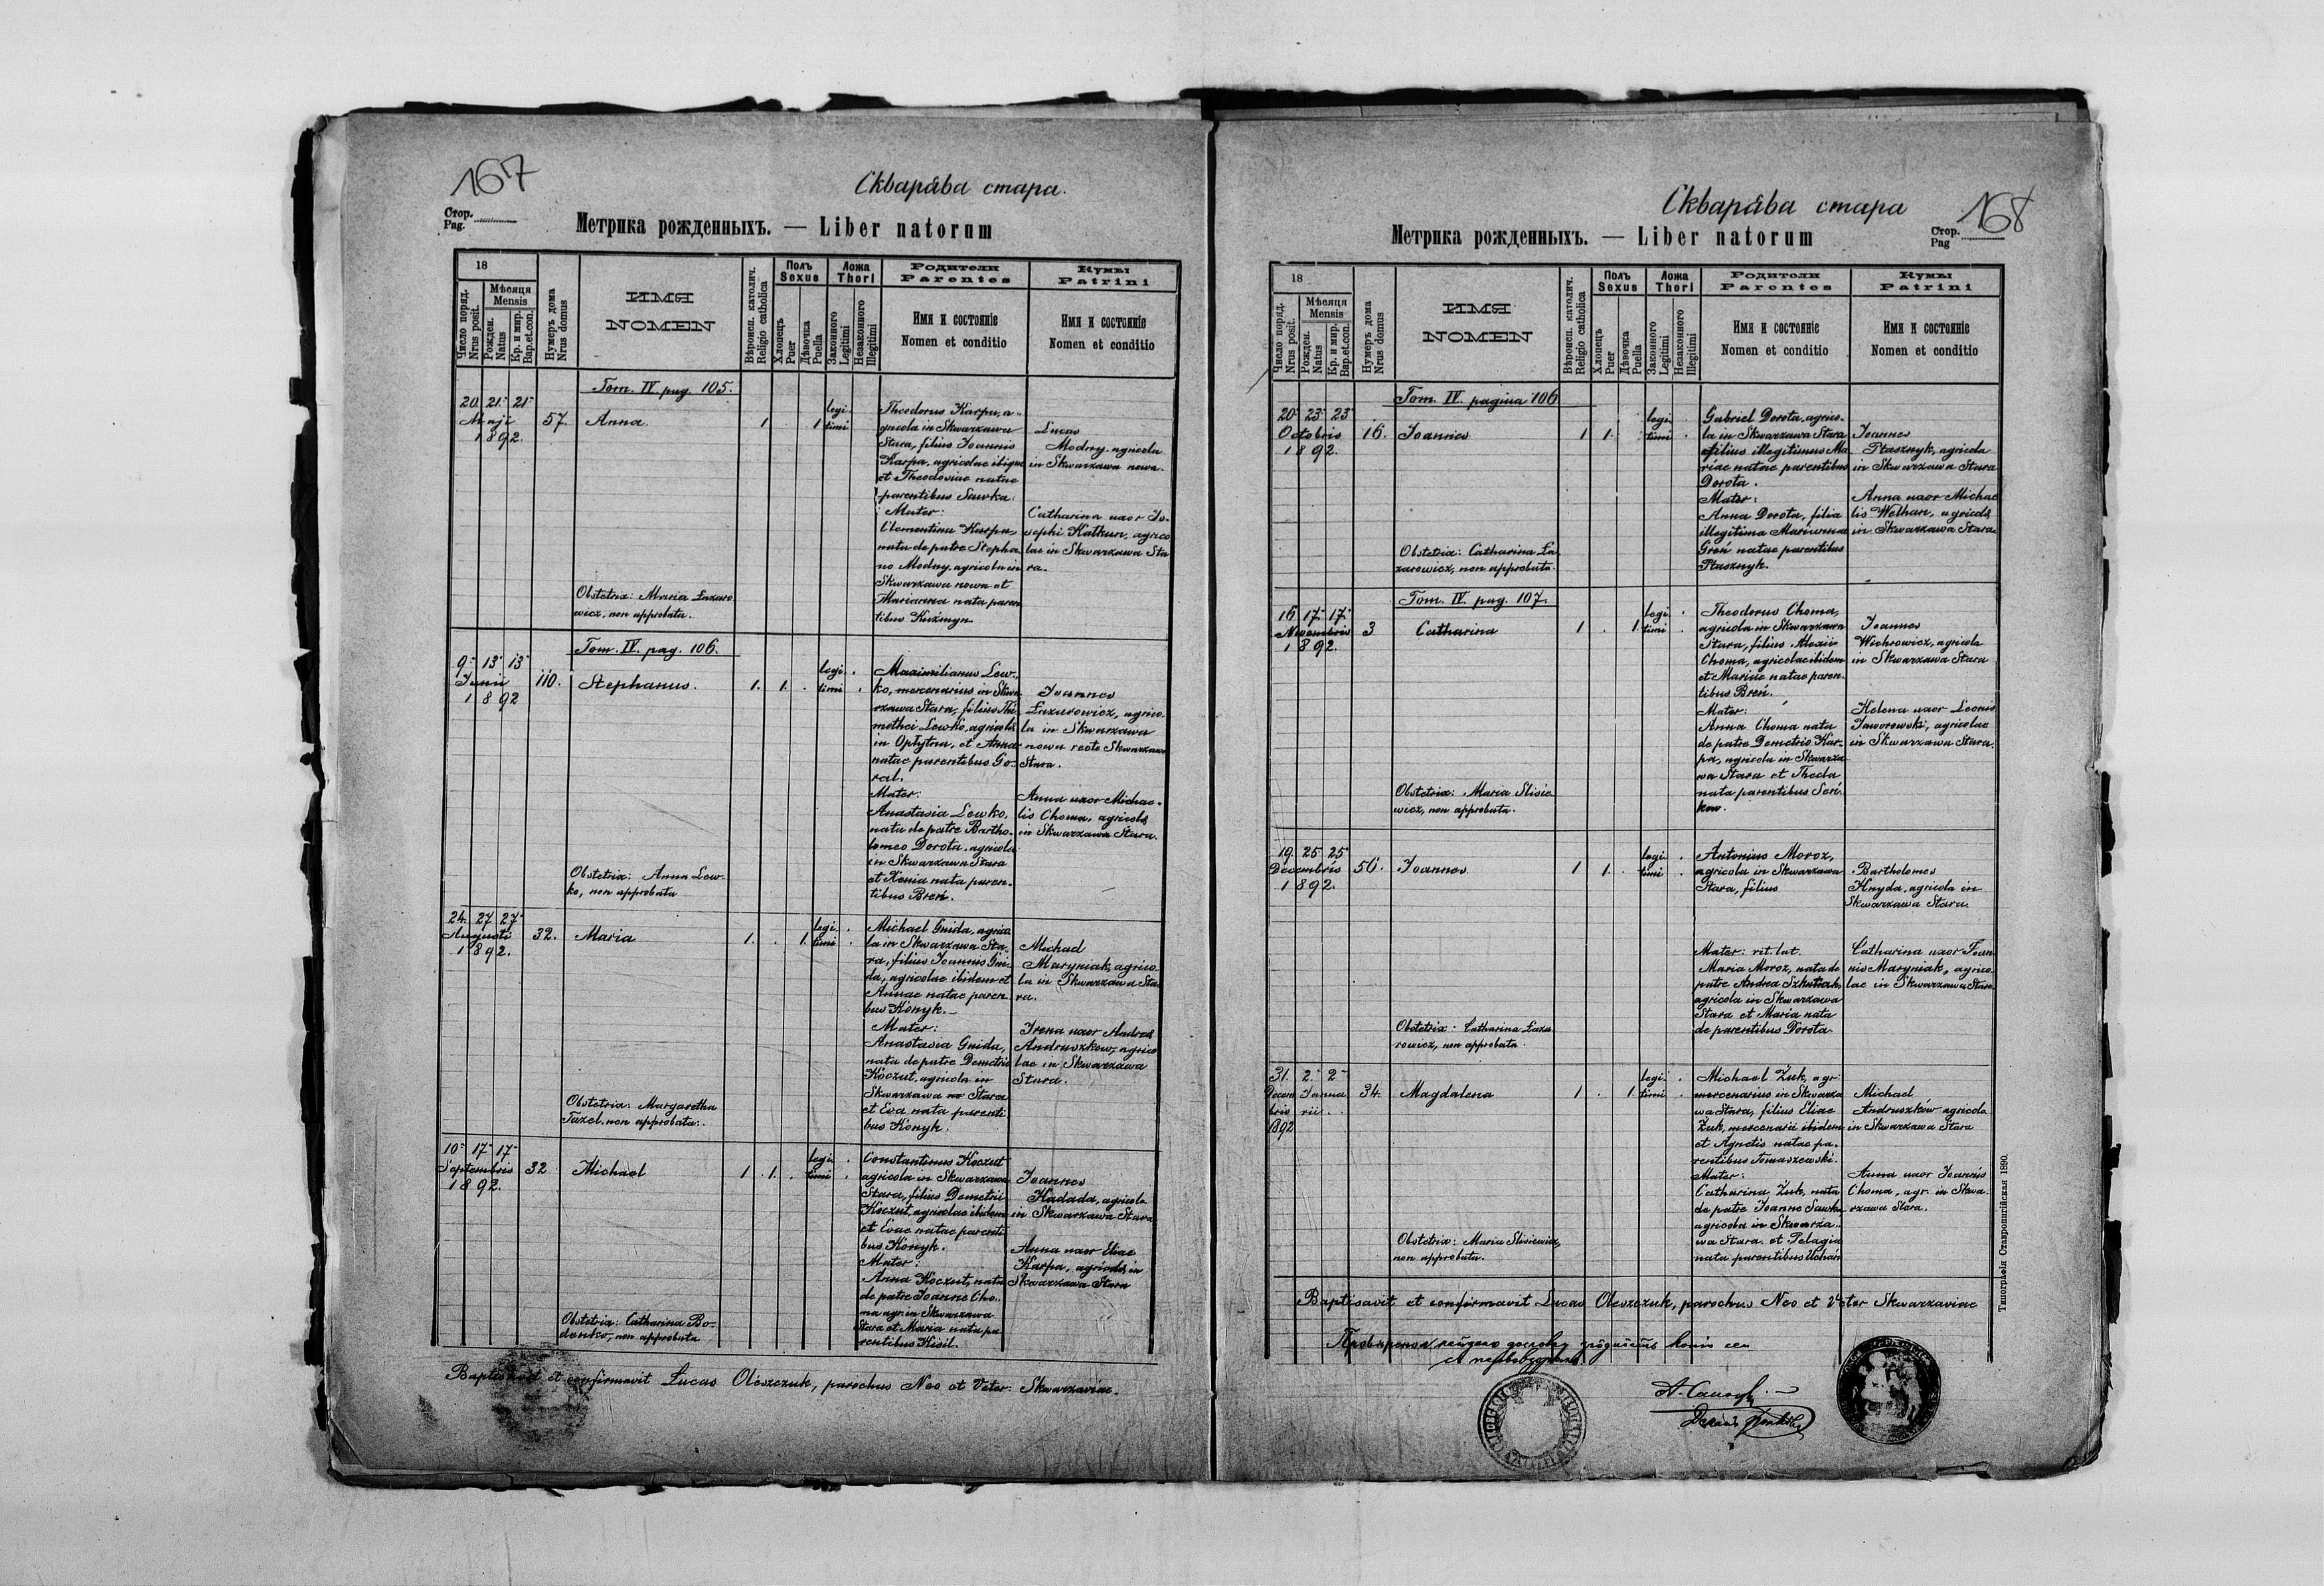 167
Скварѣва стара.
Стор.
Pag.
Метрика рожденныхъ. — Liber natorum
18
Число поряд.
Nrus posit.
Мѣсяця
Mensis
Рожден.
Natus
Кр. и мир.
Bap.et.con.
Нумеръ дома
Nrus domus
ИМЯ
NOMEN
Вѣроисп. католич.
Religio catholica
Полъ
Sexus
Хлопецъ
Puer
Дѣвочка
Puella
Ложа
Thori
Законного
Legitimi
Незаконного
Illegitimi
Родители
Parentes
Имя и состояніе
Nomen et conditio
Кумы
Patrini
Имя и состояніе
Nomen et conditio
Tom. IV. pag. 105.
20. 21. 21.
Maji
1892.
57.
Anna
1
1
legi-
timi
Theodorus Karpa, a-
gricola in Skwarzawa
Stara, filius Joannis
Karpa, agricolae ibique
et Theodosiae natae
parentibus Sawka.
Mater:
Clementina Karpa,
nata de patre Stepha
no Modny, agricola in
Skwarzawa nowa et
Marianna nata paren
tibus Kuźmyn
Lucas
Modny, agricola
in Skwarzawa nowa.
Catharina uxor Jo-
sephi Kałkun, agrico
lae in Skwarzawa Sta
ra.
Obstetrix: Maria Łazaro
wicz, non approbata.
Tom. IV. pag. 106.
9. 13. 13.
Junii
1892
110.
Stephanus.
1.
1.
legi-
timi
Maximilianus Lew-
ko, mercenarius in Skwa
rzawa Stara, filius Thi
mothei Lewko, agricolae
in Opłytna, et Annae
natae parentibus Go-
ral.
Mater:
Anastasia Lewko,
nata de patre Bartho-
lomeo Dorota, agricola
in Skwarzawa Stara
et Xenia nata paren-
tibus Breń.
Joannes
Łazarowicz, agrico-
la in Skwarzawa
nowa recte Skwarzawa
Stara.
Anna uxor Michae-
lis Choma, agricolae
in Skwarzawa Stara.
Obstetrix: Anna Lew-
ko, non approbata
24. 27. 27.
Augusti
1892.
32.
Maria
1.
1.
legi-
timi
Michael Gnida, agrico
la in Skwarzawa Sta-
ra, filius Joannis Gni-
da, agricolae ibidem et
Annae natae paren-
bus Konyk.
Mater:
Anastasia Gnida,
nata de patre Demetrio
Koczut, agricola in
Skwarzawa no Stara
et Eva nata parenti
bus Konyk.
Michael
Maryniak, agrico
la in Skwarzawa Sta
ra.
Irena uxor Andreae
Andruszkow, agrico
lae in Skwarzawa
Stara.
Obstetrix: Margaretha
Tuzel, non approbata.
10. 17. 17.
Septembris
1892.
32
Michael
1
1.
legi-
timi
Constantinus Koczut
agricola in Skwarzawa
Stara, filius Demetrii
Koczut, agricolae ibidem
et Evae natae parenti
bus Konyk.
Mater:
Anna Koczut, nata
de patre Joanne Cho-
ma agr. in Skwarzawa
Stara et Maria nata pa
rentibus Kisil.
Joannes
Kadada, agricola
in Skwarzawa Stara
Anna uxor Eliae
Karpa, agricolae in
Skwarzawa Stara
Obstetrix: Catharina Bo-
denko, non approbata
Baptisavit et confirmavit Lucas Oleszczuk, parochus Neo et Veter: Skwarzaviae.
Скварѣва стара
168
Стор.
Pag
Метрика рожденныхъ. — Liber natorum
18
Число поряд.
Nrus posit.
Мѣсяця
Mensis
Рожден.
Natus
Кр. и мир.
Bap.et.con.
Нумеръ дома
Nrus domus
ИМЯ
NOMEN
Вѣроисп. католич.
Religio catholica
Полъ
Sexus
Хлопецъ
Puer
Дѣвочка
Puella
Ложа
Thori
Законного
Legitimi
Незаконного
Illegitimi
Родители
Parentes
Имя и состояніе
Nomen et conditio
Кумы
Patrini
Имя и состояніе
Nomen et conditio
Tom. IV. pagina 106
20. 23. 23.
Octobris
1892.
16.
Joannes
1
1.
legi-
timi
Gabriel Dorota, agrico-
la in Skwarzawa Stara
filius illegitimus Ma
riae natae parentibus
Dorota.
Mater:
Anna Dorota, filia
illegitima Mariannae
Greń natae parentibus
Ptasznyk.
Joannes
Ptasznyk, agricola
in Skwarzawa Stara
Anna uxor Michae
lis Welhan, agricolae
in Skwarzawa Stara
Obstetrix: Catharina Ła
zarowicz, non approbata.
Tom. IV. pag. 107.
16 17. 17.
Novembris
1892.
3
Catharina
1
1.
legi-
timi
Theodorus Choma,
agricola in Skwarzawa
Stara, filius Alexii
Choma, agricolae ibidem
et Mariae natae paren-
tibus Breń.
Mater:
Anna Choma nata
de patre Demetrio Kar-
pa, agricola in Skwarza
wa Stara et Thecla
nata parentibus
Joannes
Wichrowicz, agricola
in Skwarzawa Stara
Helena uxor Leonis
Jaworowski, agricolae
in Skwarzawa Stara.
Obstetrix: Maria Slisie
wicz, non approbata.
19. 25. 25.
Decembris
1892.
50.
Joannes
1
1.
legi-
timi
Antonius Moroz,
agricola in Skwarzawa
Stara, filius
Mater: rit. lat.
Maria Moroz, nata de
patre Andrea Szkutiak,
agricola in Skwarzawa
Stara et Maria nata
de parentibus Dorota.
Bartholomes
Knyda, agricola in
Skwarzawa Stara.
Catharina uxor Joan
nis Maryniak, agrico
lae in Skwarzawa Stara
Obstetrix: Catharina Łaza
rowicz, non approbata.
31. 2. 2.
Decem Janua
bris rii
1892
34.
Magdalena
1
1
legi-
timi
Michael Żuk, agr.
mercenarius in Skwarza
wa Stara, filius Eliae
Żuk, mercenarii ibidem
et Agnetis natae pa-
rentibus Tomaszewski.
Mater:
Catharina Żuk, nata
de patre Joanne Sawka
agricola in Skwarza-
wa Stara. et Pelagia
nata parentibus Uchań
Michael
Andruszków agricola
in Skwarzawa Stara
Anna uxor Joannis
Choma, agr. in Skwa-
rzawa Stara.
Obstetrix: Maria Slisiewicz,
non approbata.
Baptisavit et confirmavit Lucas Oleszczuk, parochus Neo et Veter Skwarzaviae
Типографія Ставропигійская 1890.